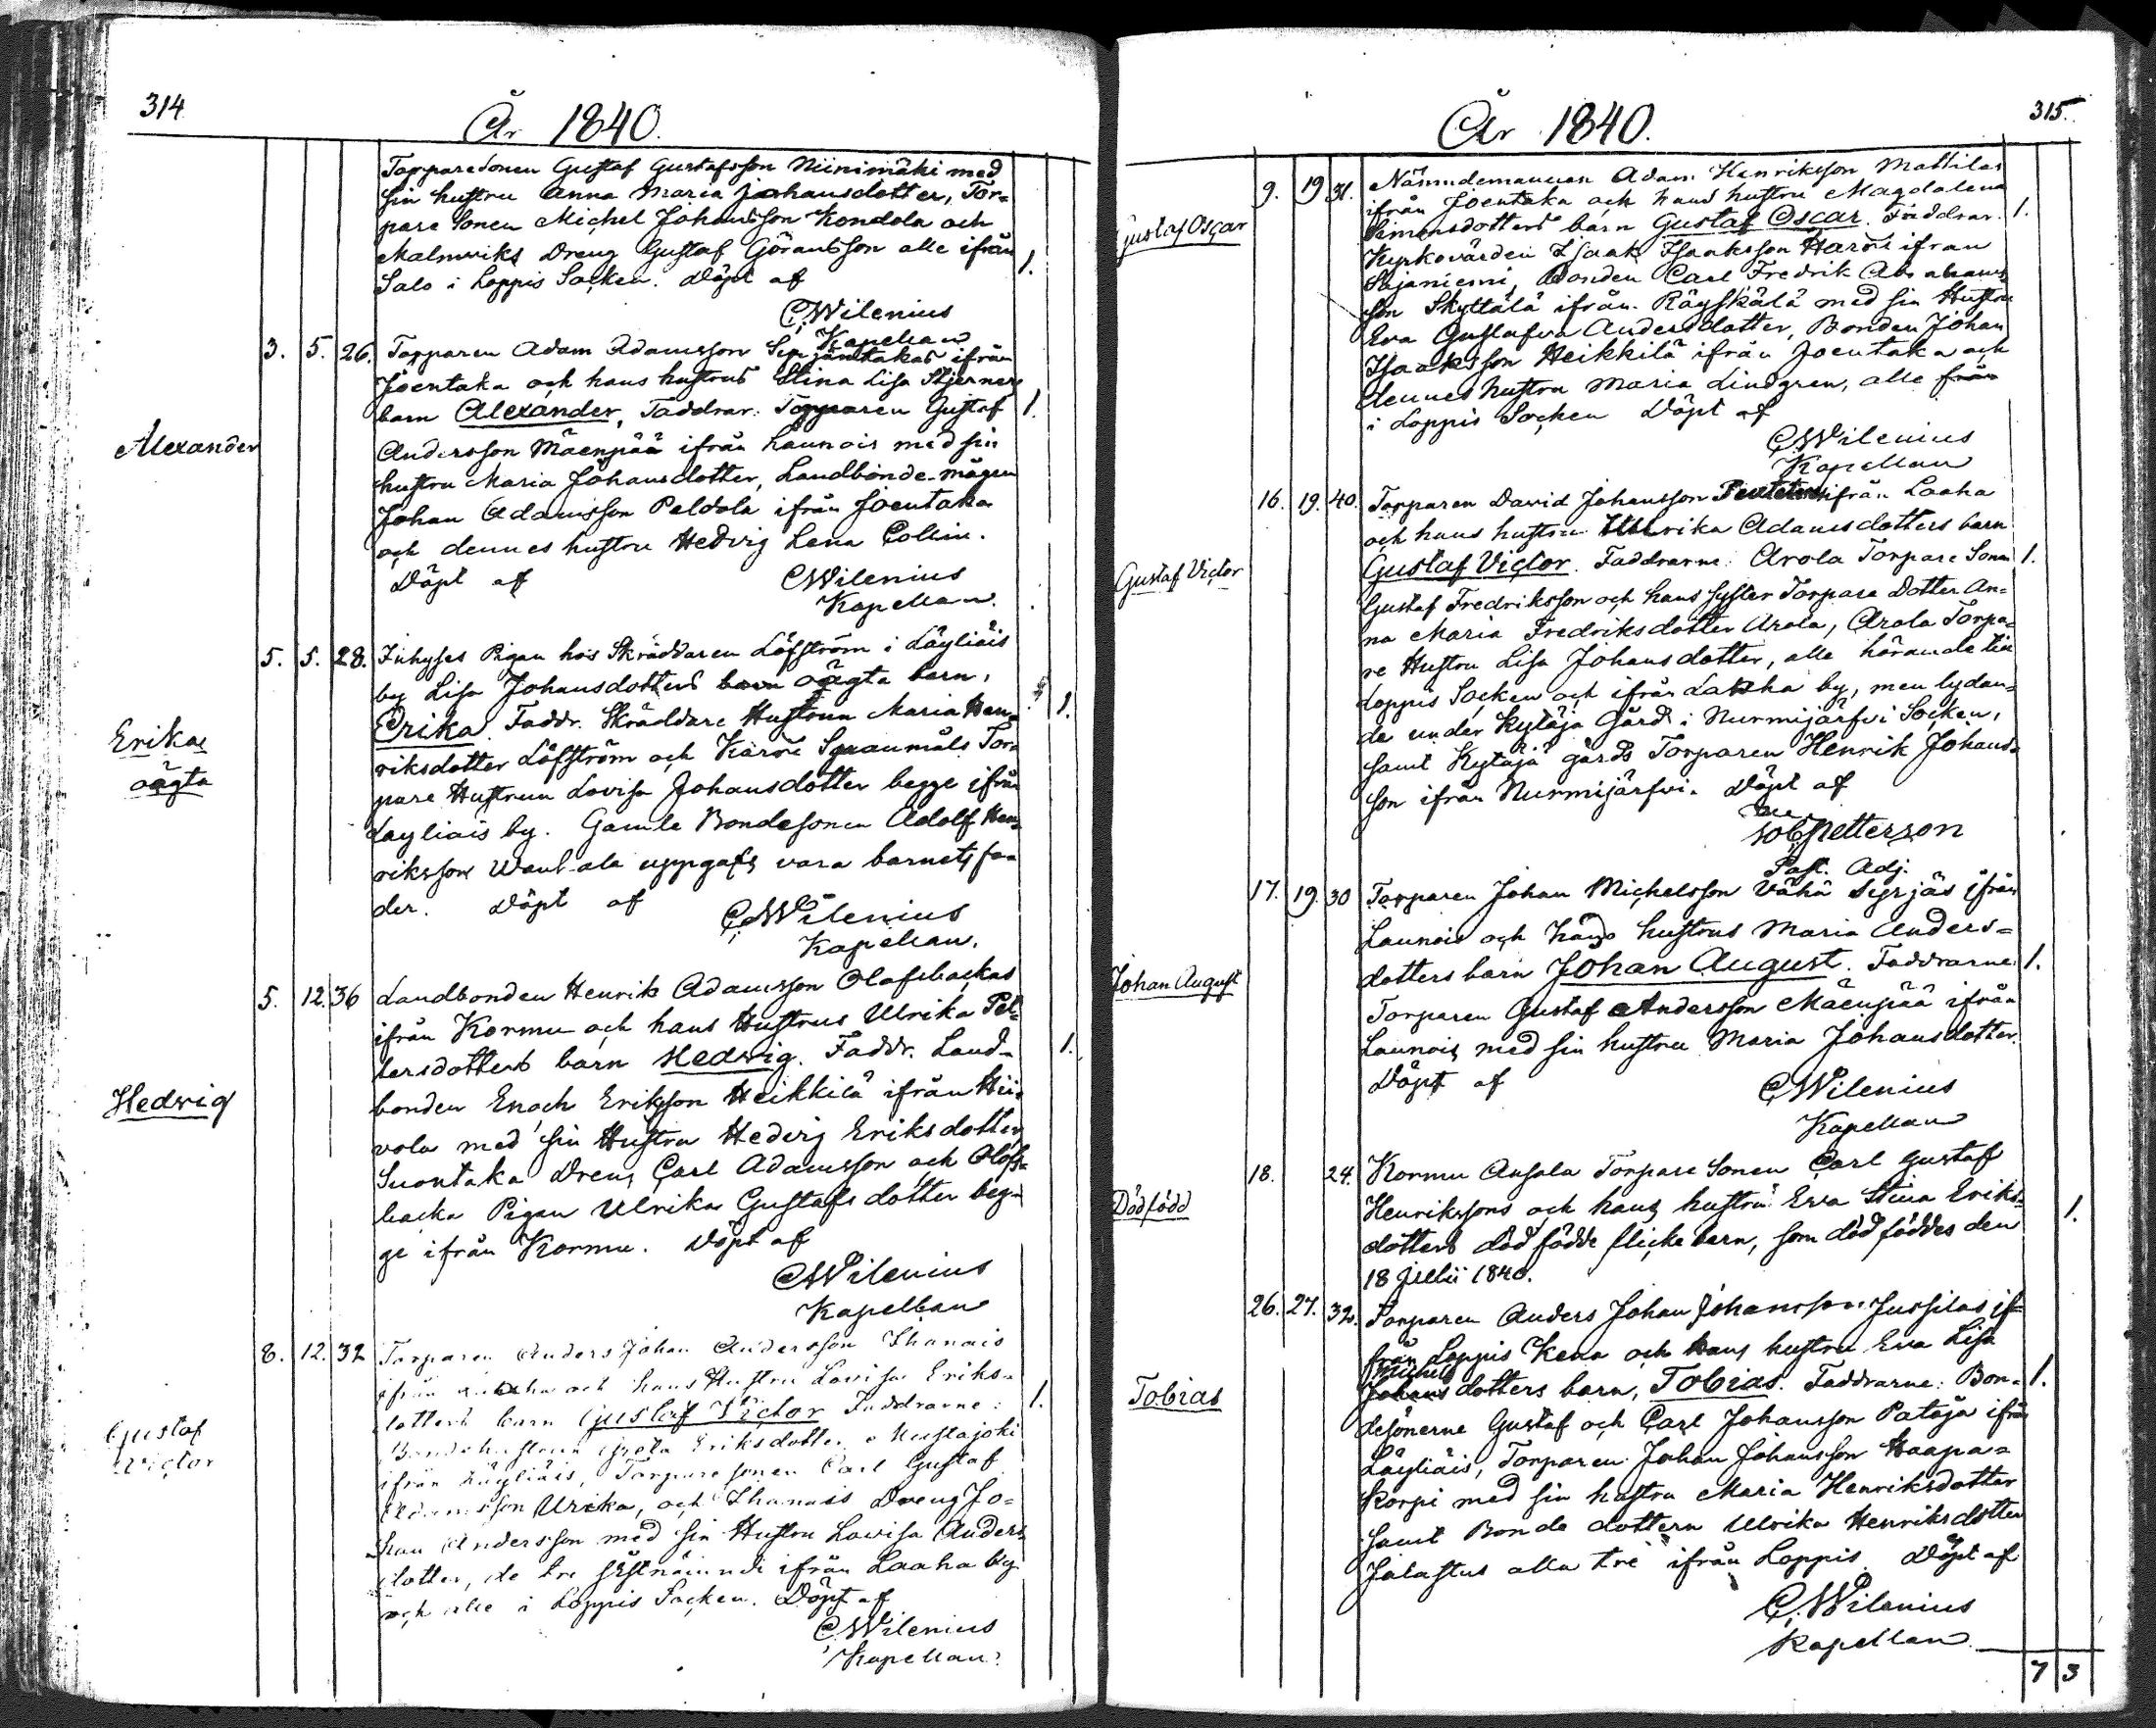 314
År 1840.
Torparesonen Gustaf Gustafsson Niinimäki med
sin hustru Anna Maria Johansdotter, Tor=
pare Sonen Michel Johansson Kondola och
Malmviks Dreng Gustaf Göransson alle ifrån
Salo i Loppis Socken. Döpt af 1.
CWilenius
Kapellan
3. 5. 26. Torparen Adam Adamsson ifrån
Joentaka och hans hustrus Stina Lisa
barn Alexander, Faddrar: Torparen Gustaf 1.
Alexander
Andersson Mäenpää ifrån Launois med sin
hustru Maria Johansdotter, Landbonde-mågen
Johan Adamsson Peldola ifrån Joentaka
och dennes hustru Hedvig Lena Collin.
Döpt af CWilenius
Kapellan.
5. 5. 28. Inhyses Pigan hos Skräddaren Löfström i Läyliäis
by Lisa Johansdotters barn oägta barn,
Erika. Faddr. Skräddare Hustrun Maria Hen= 1.
Erika
oägta
riksdotter Löfström och Karre Tor=
pare Hustrun Lovisa Johansdotter begge ifrån
Layliäis by. Gamle Bondesonen Adolf Hen=
riksson uppgafs vara barnets fa=
der. Döpt af CWilenius
Kapellan.
5. 12. 36 Landbonden Henrik Adamsson Olofsbackas
ifrån Kormu och hans Hustrus Ulrika Pet=
tersdotters barn Hedvig. Faddr. Land= 1.
Hedwig
bonden Enoch Eriksson Heikkilä ifrån Hii=
vola med sin Hustru Hedvig Eriksdotter,
Suontaka Dreng Carl Adamsson och Olofs=
backa Pigan Ulrika Gustafsdotter beg=
ge ifrån Kormu. Döpt af
CWilenius
Kapellan
8. 12. 32 Torparen Anders Johan Andersson Ihanais
ifrån och hans Hustru Lovisa Eriks=
dotters barn Gustaf Victor Faddrarne: 1.
Gustaf
Victor
Bondehustrun Greta Eriksdotter Mustajoki
ifrån Läyliäis, Torparesonen Carl Gustaf
Adamsson Urika, och Ihanais Dreng Jo=
han Andersson med sin Hustru Lovisa Anders
dotter, de tre sistnämnde ifrån Laaha by
och alle i Loppis Socken. Döpt af
CWilenius
Kapellan
År 1840.
315.
9. 19 31. Nämndemannen Adam Henriksson Mattilas
ifrån Joentaka och hans hustru Magdalena
Gustaf Oscar
Simonsdotters barn Gustaf Oscar. Faddrar. 1.
Kyrkovärden Isaak Isaaksson Harre ifrån
Sajaniemi, Bonden Carl Fredrik Abrahams
son Skyttälä ifrån Räyskälä med sin Hustru
Eva Gustafva Andersdotter, Bonden Johan
Isaaksson Heikkilä ifrån Joentaka och
dennes hustru Maria Lindgren, alle från
i Loppis Socken Döpt af
CWilenius
Kapellan
16. 19. 40. Torparen David Johansson ifrån Laaha
och hans hustru Ulrika Adamsdotters barn
Gustaf Victor. Faddrarne: Arola Torpare Sonen 1.
Gustaf Victor
Gustaf Fredriksson och hans syster Torpare Dotter An=
na Maria Fredriksdotter Arola, Arola Torpa=
re Hustru Lisa Johansdotter, alle hörande till
Loppis Socken och ifrån Laaha by, men lydan=
de under Kytäjä Gård i Nurmijärfvi Socken,
samt Kytäjä gårds Torparen Henrik Johans=
son ifrån Nurmijärfvi. Döpt af
Petterson
Past. Adj.
17. 19. 30 Torparen Johan Michelsson Vähä Syrjäs ifrån
Launois och hans hustrus Maria Anders=
dotters barn Johan August. Faddrarne 1.
Johan August
Torparen Gustaf Andersson Mäenpää ifrån
Launois med sin hustru Maria Johansdotter.
Döpt af CWilenius
Kapellan
18. 24. Kormu Ansala Torpare Sonen Carl Gustaf
Dödfödd
Henrikssons och hans hustru Eva Stina Eriks= 1.
dotters död födde flicke barn, som död föddes den
18 Julii 1840.
26. 27. 32. Torparen Anders Johan Johansson Jussilas if=
från Loppis Kena och hans hustru Eva Lisa
Michels
Johans dotters barn, Tobias. Faddrarne: Bon= 1.
Tobias
desönerne Gustaf och Carl Johansson Patoja ifrån
Läyliäis, Torparen Johan Johansson Haapa=
korpi med sin hustru Maria Henriksdotter
samt Bonde dottern Ulrika Henriksdotter
Jalastus alla tre ifrån Loppis. Döpt af
C.Wilenius
Kapellan
7 3